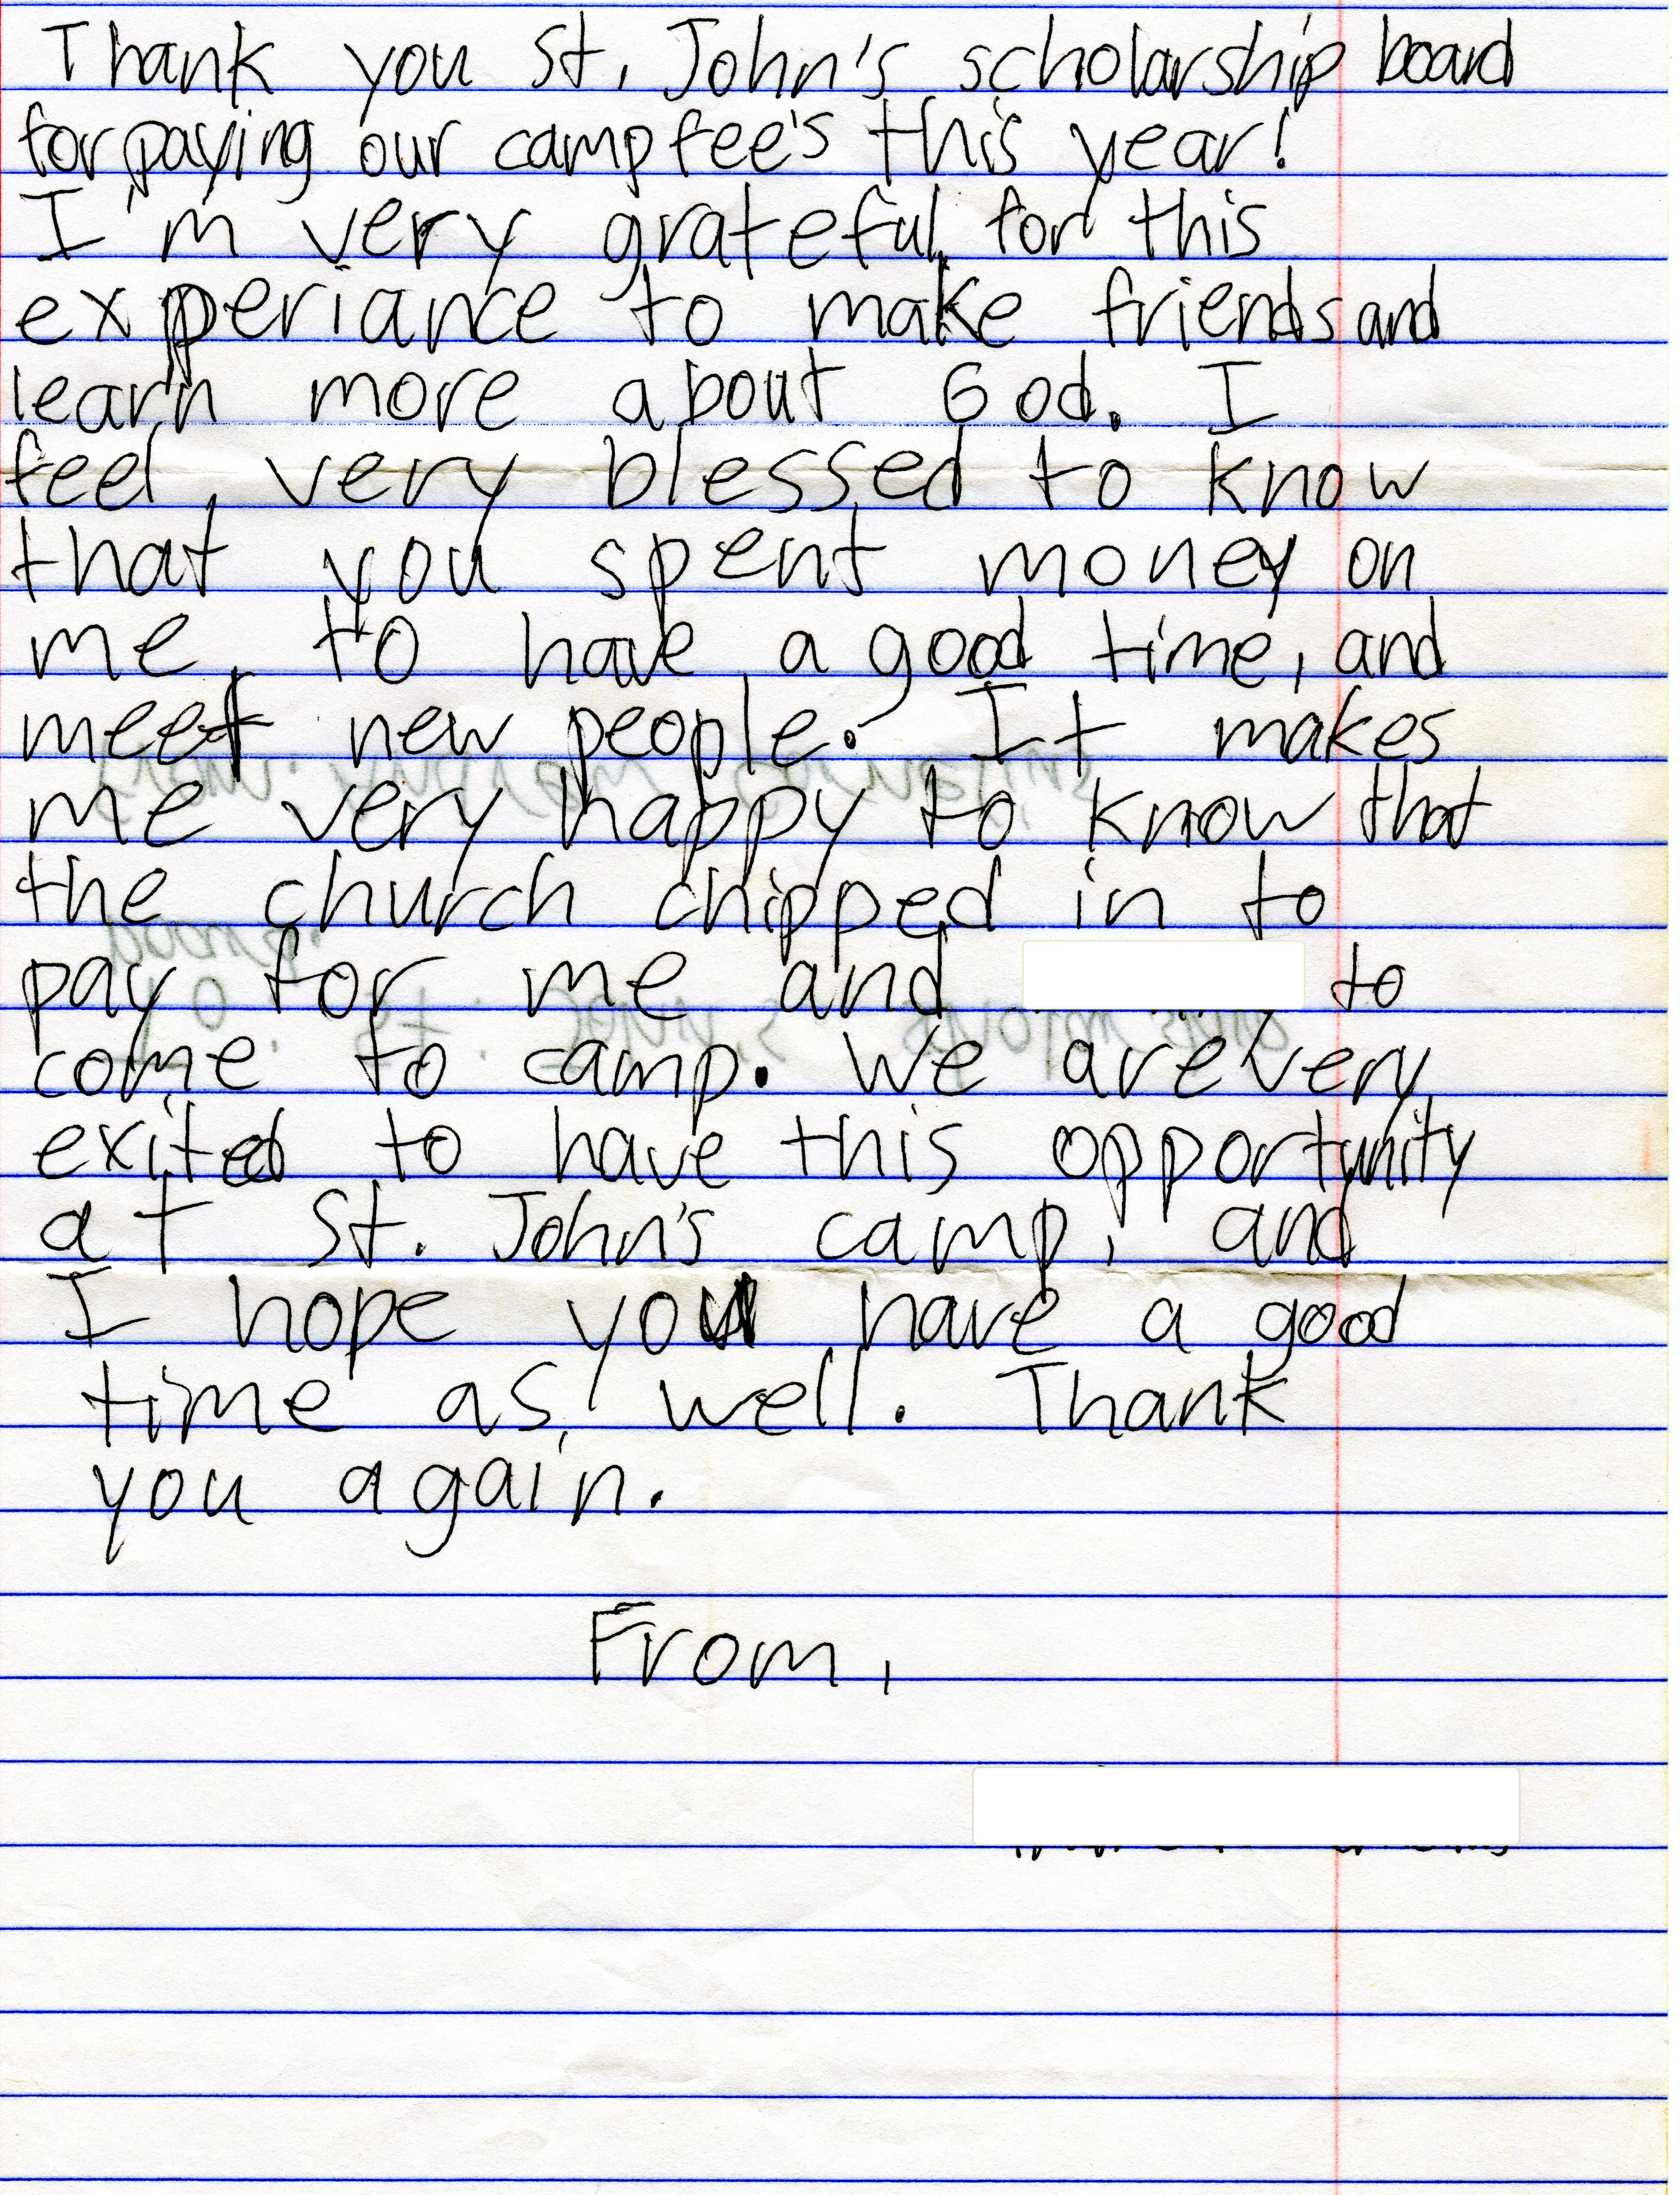 Thank you St. John's scholarship board
for paying our camp fee's this year!
I'm very grateful for this
experiance to make friends and
learn more about God. I
feel very blessed to know
that you spent money on
me to have a good time, and
meet new people. It makes
me very happy to know that
the church chipped in to
pay for me and to
come to camp. We are very
exited to have this opportunity
at St. John's camp, and
I hope you have a good
time as well. Thank
you again.
From,